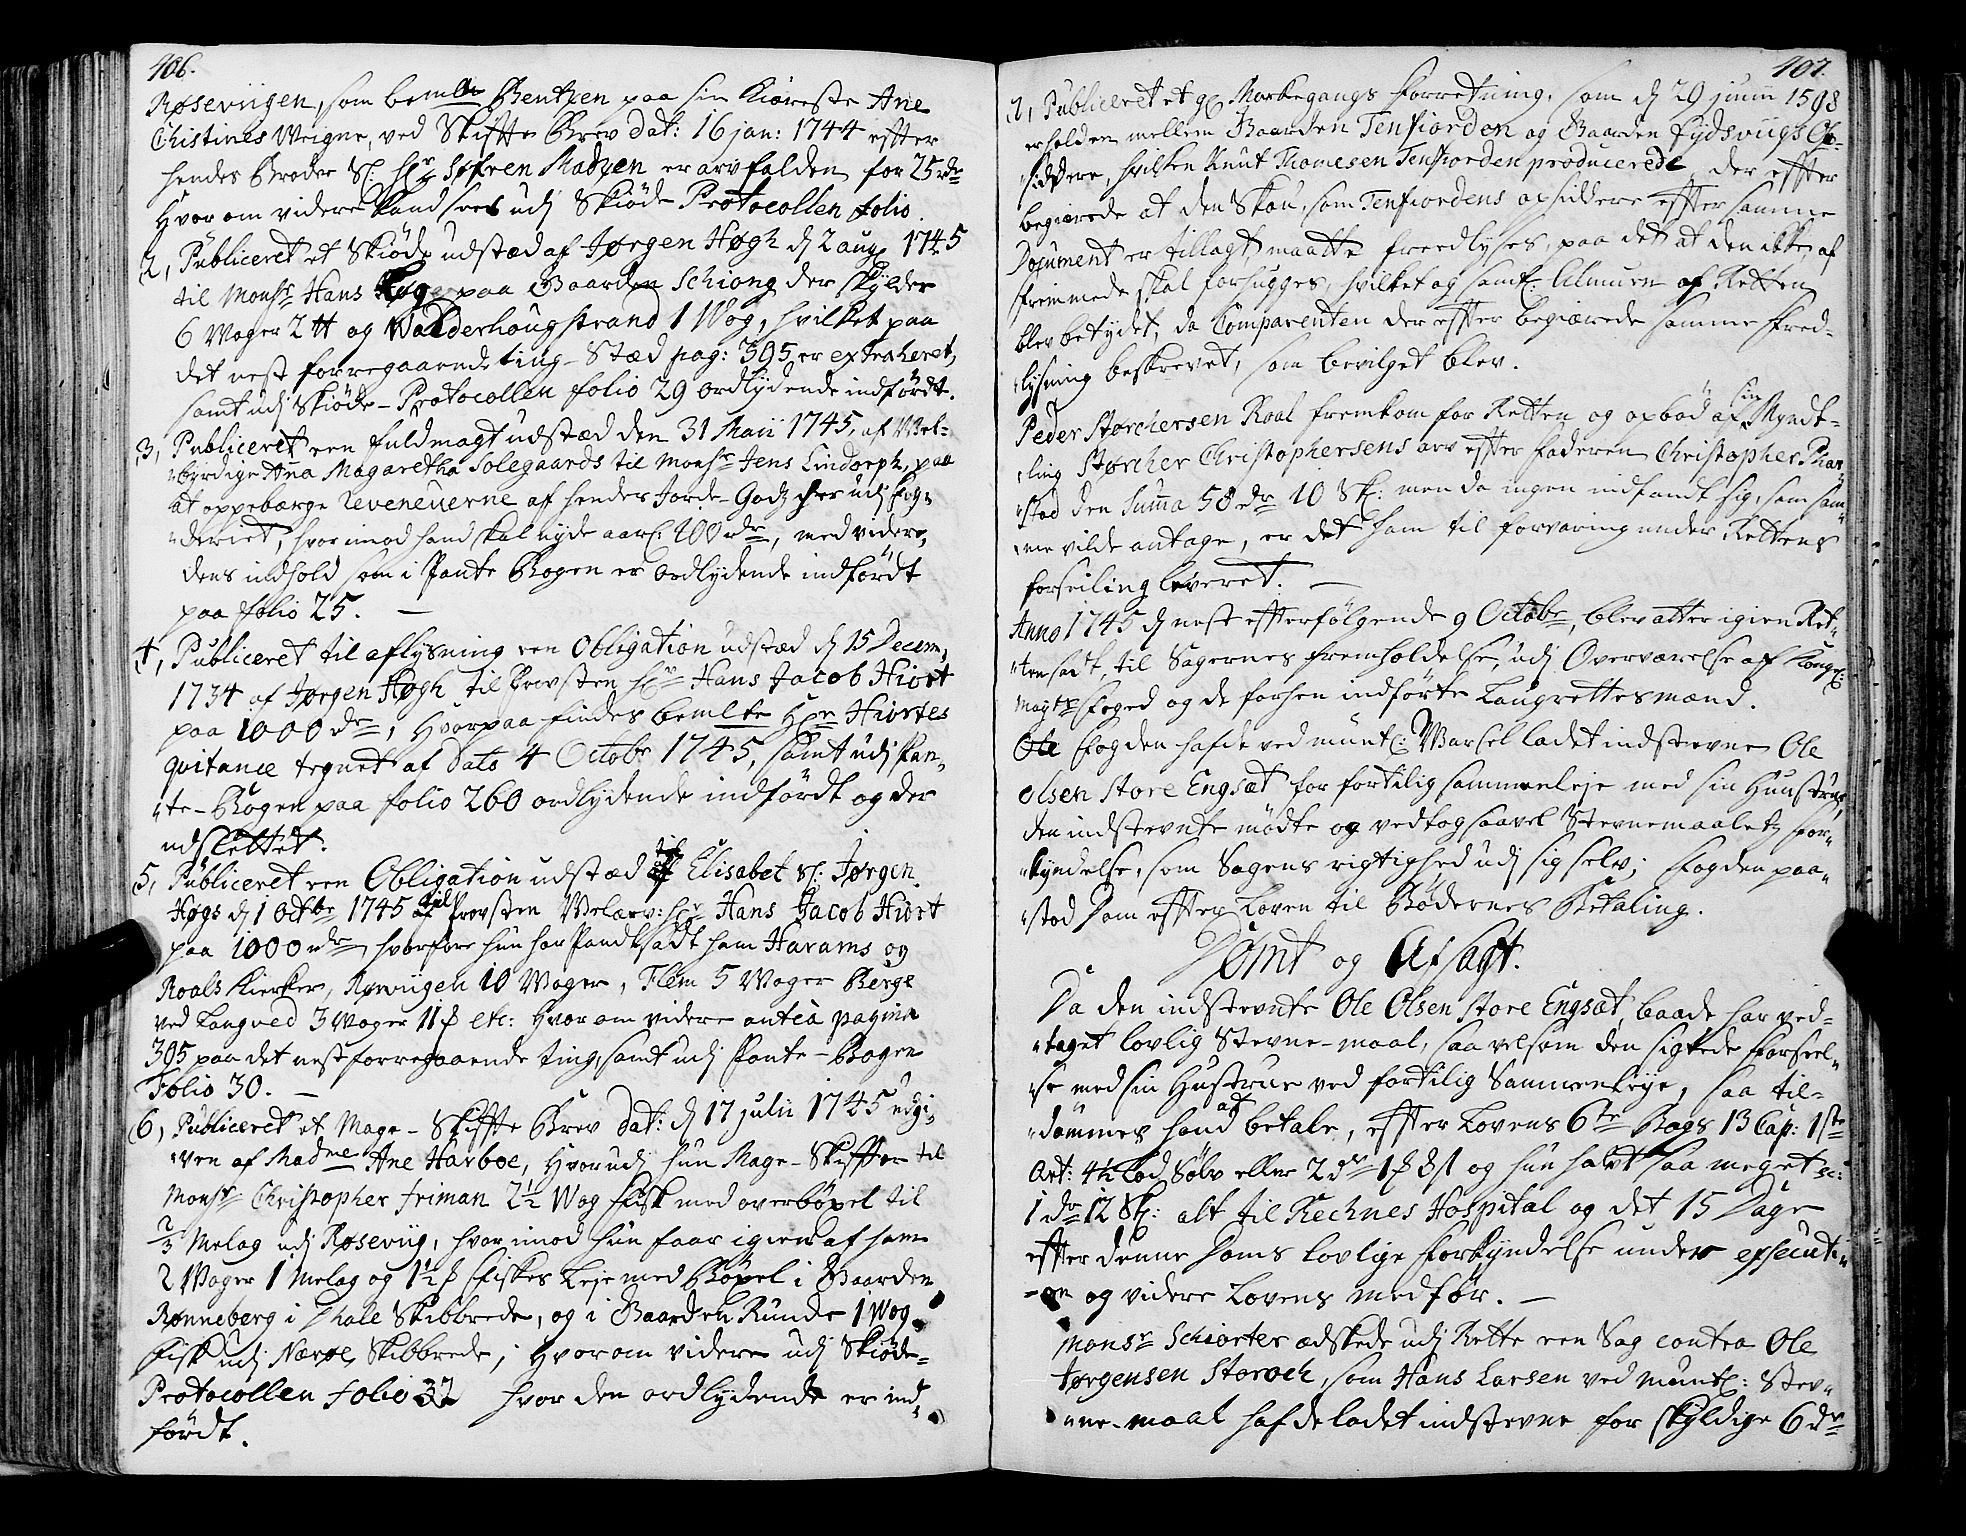 406.
Røseviigen, som bemlte Bentzen paa sin Kiæreste Ane
Christines Weigne, ved Skifte Brev dat: 16 jan: 1744 efter
hendes Broder Sl: Hr Søfren Madzen er arvfalden for 25 rdr
Hvor om videre kand sees udj Skiøde Protocollen folio
2, Publiceret et Skiøde udstæd af Jørgen Høgh d 2 aug: 1745
til Monsr Hans Høg paa Gaarden Schiong der skylder
6 Woger 2 ℔ og Walderhougstrand 1 Wog, hvilket paa
det nest forregaaende ting-Stæd pag: 395 er extraheret,
samt udj Skiöde-Protocollen folio 29 ordlydende indfördt.
3, Publiceret een fuldmagt udstæd den 31 Maii 1745, af Wel-
byrdige Anna Magaretha Solegaards til Monsr Jens Lindorph, paa
at oppebærge Reveneuerne af hendes Jorde-Godz her udj Fog-
deriet, hvorimod hand skal nyde aarl: 100 rdr, med videre,
dens indhold som i Pante Bogen er ordlydende indfördt
paa folio 25. —
4, Publiceret til aflysning een Obligation udstæd d 15 Decem,
1734 af Jørgen Høgh til Provsten Hr Hans Jacob Hiort
paa 1000 rdr, Hvorpaa findes bemlte Hr Hiortes
qvitance tegnet af Dato 4 Octobr 1745, samt udj Pan-
te-Bogen paa folio 260 ordlydende indfördt og der
udslettet.
5, Publiceret een Obligation udstæd af Elisabet sl: Jørgen
Høgs d 1 Octbr 1745 til Provsten Welærv: Hr Hans Jacob Hiort
paa 1000 rdr, hvorfore hun har Pandtsadt ham Harams og
Roals Kierker, Rørviigen 10 Woger, Flem 5 Woger Berge
ved Langved 3 Woger 11 ß etc: Hvor om videre antea pagina
305 paa det nest forregaaende ting, samt udj Pante-Bogen
Folio 30. —
6, Publiceret et Mage-Skifte Brev dat: d 17 julii 1745 udgi-
ven af Madme Ane Harboe, Hvorudj hun Mage-Skifter til
Monsr Christopher Friman 2½ Wog fisk med overböxel til
⅔ Melag udj Røseviig, hvor imod hun faar igien af ham
2 Woger 1 Melag og 1½ ß fiskes Leje med Böxel i Gaarden
Rønneberg i Thale Skibbrede, og i Gaarden Runde 1 Wog
fisk udj Nærøe Skibbrede, Hvorom videre udj Skiöde-
Protocollen folio 32 hvor den ordlydende er ind
fördt.
407.
7, Publiceret et gl Markegangs Forretning, som d 29 junii 1598
erholden mellem Gaarden Tenfiorden og Gaarden Eydsviigs Op-
siddere, hvilken Knut Thomesen Tenfiorden producerede, der efter
begiærede at den Skou, som Tenfiordens opsiddere efter samme
Document er tillagt, maatte freedlyses, paa det at den ikke af
fremmede skal forhugges, hvilket og samtl: Almuen af Retten
blev betydet, da Comparenten der efter begiærede samme fred-
lysning beskrevet, som bevilget blev.
Peder Størchersen Roal fremkom for Retten og opböd af sin Myndt-
ling Størcher Christophersens arv efter faderen Christopher Phar-
stad den Summa 58 rdr 10 Sk: men da ingen indfandt sig, som sam-
me vilde antage, er det ham til forvaring under Rettens
forseiling leveret. —
Anno 1745 d nest efterfölgende 9 Octobr, blev atter igien Ret-
ten sadt, til Sagernes fremholdelse, udj Overværelse af Kongel:
Maytz Foged og de forhen indförte Laugrettesmænd.
Fogden hafde ved muntl: Warsel ladet indstevne Ole
Olsen Store Engsæt for fortilig sammenleje med sin Hustrue,
den indstevnte mødte og vedtog saavel Stevnemaaletz for-
kyndelse, som Sagens rigtighed udj sig selv; Fogden paa-
stod Dom efter Loven til Bödernes Betaling.
Dömt og Afsagt.
Da den indstevnte Ole Olsen Store Engsæt, baade har ved-
taget lovlig Stevne-maal, saa velsom den sigtede Forseel-
se med sin Hustrue ved fortilig Sammenleje, saa til-
dömmes hand at betale, efter Lovens 6te Bogs 13 Cap: 1ste
Art: 4½ Lod Sölv eller 2 dr 1 ß 8 sk og hun halvt saa meget sc:
1 dr 12 Sk: alt til Rechnes Hospital og det 15 Dage
efter denne Doms lovlige Forkyndelse under execut-
on og videre Lovens medför. —
Monsr Schiorter æskede udj Rette een Sag contra Ole
Jørgensen Storoch, som Hans Larsen ved muntl: Stev-
ne-maal hafde ladet indstevne for skyldige 6 dr